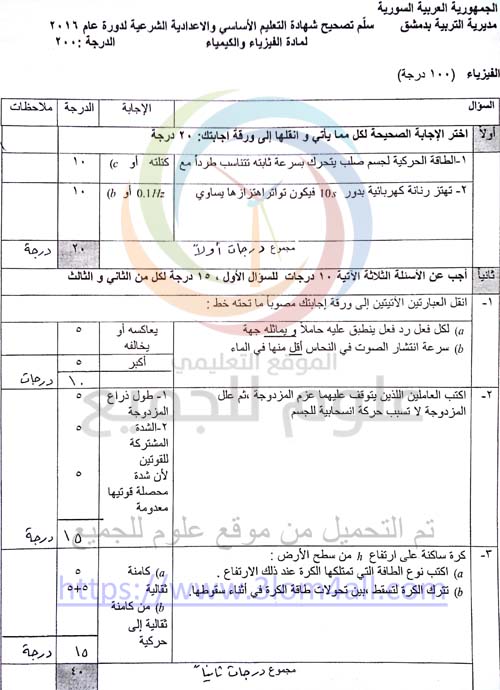 الجمهورية العربية السورية
مديرية التربية بدمشق سلّم تصحيح شهادة التعليم الأساسي والاعدادية الشرعية لدورة عام ٢٠١٦
لمادة الفيزياء والكيمياء الدرجة :٢٠٠
الفيزياء (١٠٠ درجة)
السؤال الإجابة الدرجة ملاحظات
أولاً اختر الإجابة الصحيحة لكل مما يأتي و انقلها إلى ورقة اجابتك: ٢٠ درجة
١-الطاقة الحركية لجسم صلب يتحرك بسرعة ثابته تتناسب طرداً مع كتلته أو c) ١٠
٢- تهتز رنانة كهربائية بدور 10s فيكون تواتر اهتزازها يساوي 0.1Hz أو b) ١٠
مجموع درجات أولاً ٢٠ درجة
ثانياً أجب عن الأسئلة الثلاثة الآتية ١٠ درجات للسؤال الأول ، ١٥ درجة لكل من الثاني و الثالث
١- انقل العبارتين الآتيتين إلى ورقة إجابتك مصوباً ما تحته خط :
a) لكل فعل رد فعل ينطبق عليه حاملاً و يماثله جهة يعاكسه أو يخالفه ٥
b) سرعة انتشار الصوت في النحاس أقل منها في الماء أكبر ٥
١٠ درجات
الموقع التعليمي
علوم للجميع
٢- اكتب العاملين اللذين يتوقف عليهما عزم المزدوجة ،ثم علل ١- طول ذراع ٥
المزدوجة لا تسبب حركة انسحابية للجسم المزدوجة
٢-الشدة ٥
المشتركة
للقوتين
لأن شدة ٥
محصلة قوتيها
معدومة
١٥ درجة
تم التحميل من موقع علوم للجميع
٣- كرة ساكنة على ارتفاع h من سطح الأرض :
a) اكتب نوع الطاقة التي تمتلكها الكرة عند ذلك الارتفاع . a) كامنة ٥
b) تترك الكرة لتسقط ،بين تحولات طاقة الكرة في أثناء سقوطها. ثقالية ٥+٥
b) من كامنة
ثقالية إلى
حركية
https://www.3lom4all.com
١٥ درجة
مجموع درجات ثانياً ٤٠